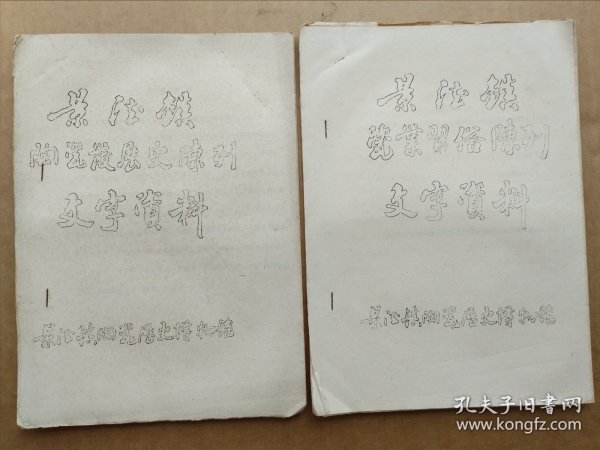 景德镇
陶瓷发展史陳列
文字資料
景德镇陶瓷歷史博物馆
景德镇
瓷業習俗陳列
文字資料
景德镇陶瓷歷史博物馆
孔夫子旧书网
www.kongfz.com